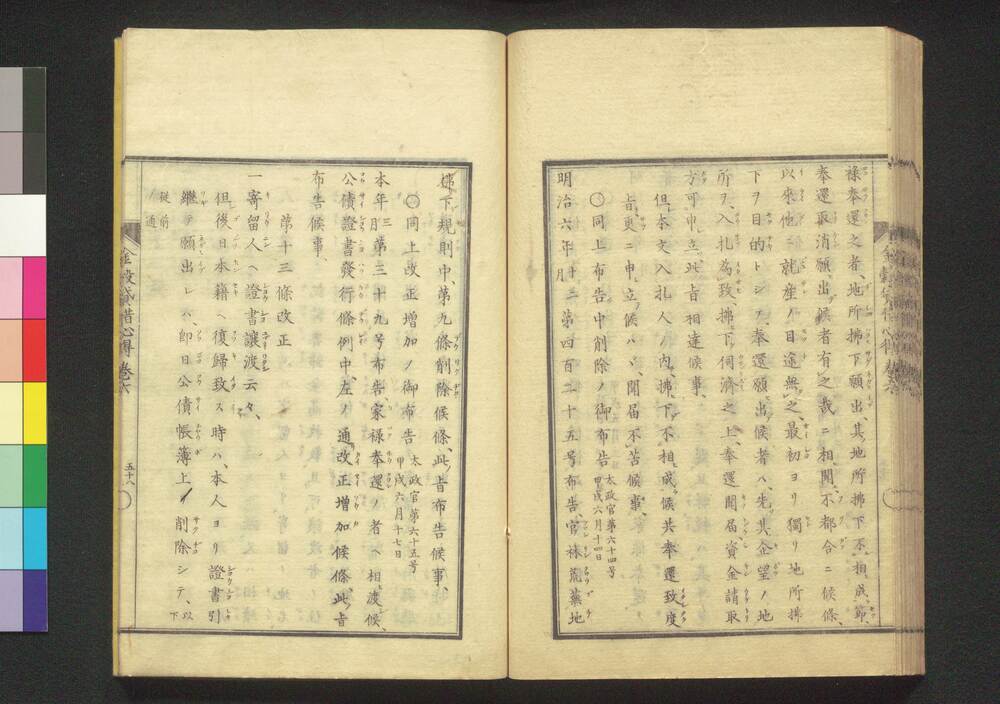 祿奉還之者、地所拂下願出、其地所拂下不相成節、
奉還取消願出候者有之哉ニ相聞、不都合ニ候條、
以來他ニ就産ノ目途無之、最初ヨリ獨リ地所拂
下ヲ目的トシテ、奉還願出候者ハ、先其企望ノ地
所ヲ、入札為致、拂下伺濟之上、奉還聞届資金請取
方可申立、此旨相達候事、
但本文入札人ノ内、拂下不相成候共奉還致度
旨更ニ申立候ハヽ、聞届不苦候事、
〇同上布告中削除ノ御布告 太政官第六十四号 甲戌六月十四日
明治六年十二月第四百二十五号布告、官林荒蕪地
拂下規則中、第九條削除候條、此旨布告候事、
〇同上改正増加ノ御布告 太政官第六十五号 甲戌六月十七日
本年三月第三十九号布告、家禄奉還ノ者ヘ相渡候、
公債證書發行條例中、左ノ通改正増加候條、此旨
布告候事、
第十三條改正
一寄留人ヘ證書讓渡云々、
但後日本籍ヘ復歸致ス時ハ、本人ヨリ證書引
繼テ願出レハ、即日公債帳簿上ノ削除シテ、以下
從前ノ通
金穀貸借心得 卷六
五十八